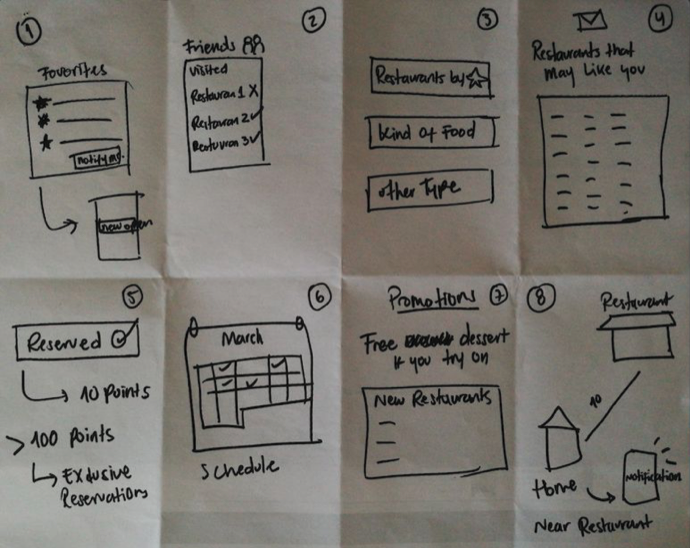 1
Favorites
notify me
now open
2
Friends
Visited
Restauran 1 X
Restauran 2 ✓
Restauran 3 ✓
3
Restaurants by ☆
kind of Food
other Type
4
Restaurants that
may like you
5
Reserved ✓
10 Points
> 100 Points
Exclusive
Reservations
6
March
Schedule
7
Promotions
Free dessert
if you try on
New Restaurants
8
Restaurant
Home
Notification
Near Restaurant